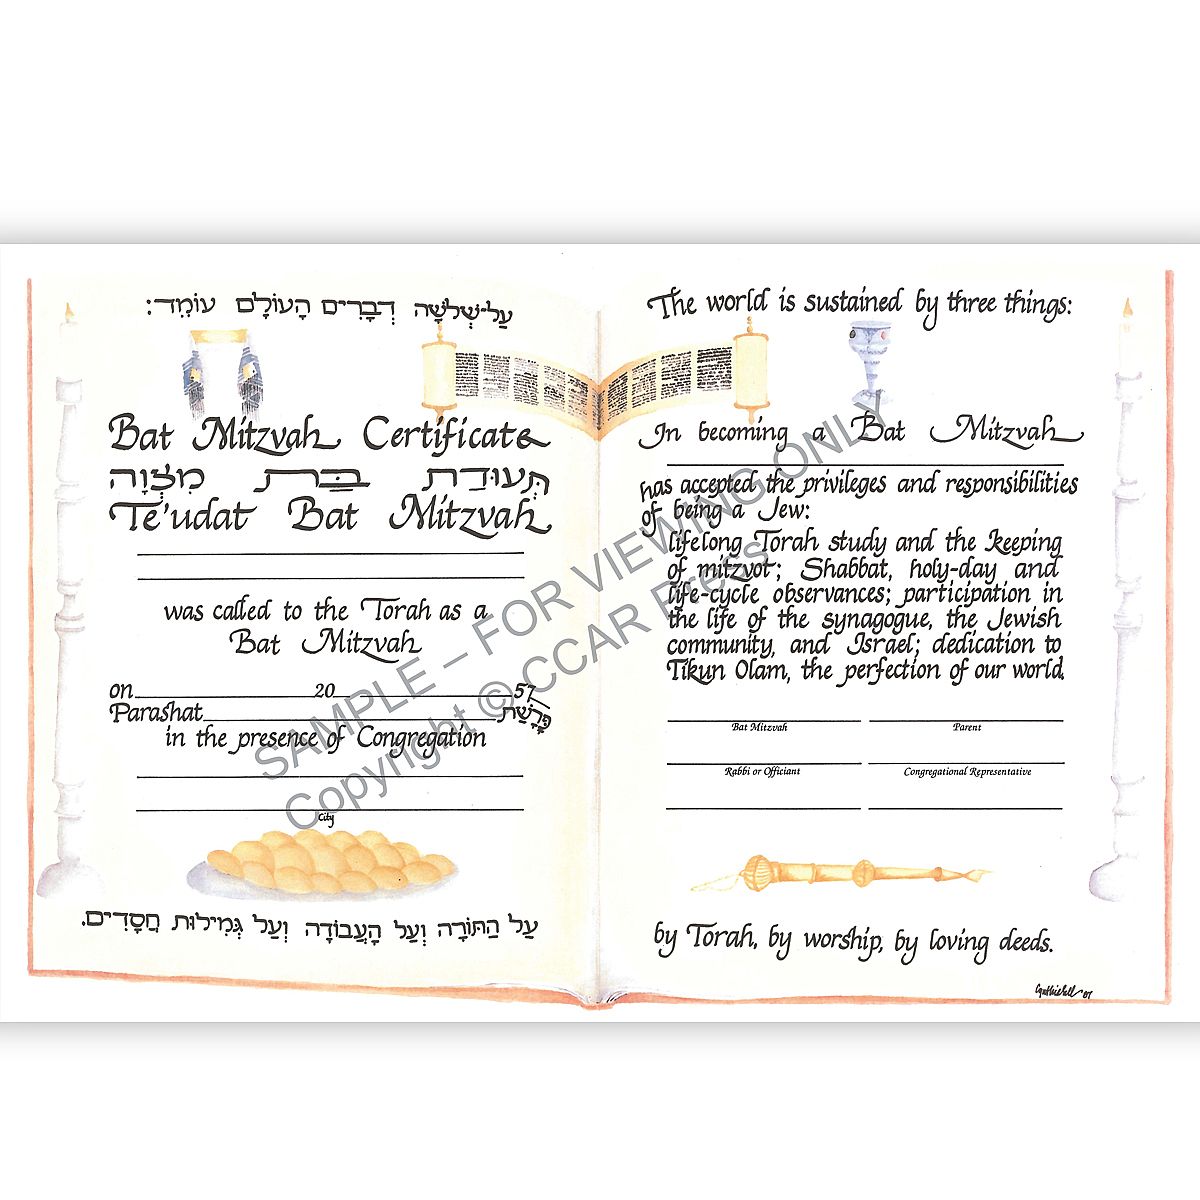 עַל־שְׁלֹשָׁה דְבָרִים הָעוֹלָם עוֹמֵד:
Bat Mitzvah Certificate
תְּעוּדַת בַּת מִצְוָה
Te'udat Bat Mitzvah
was called to the Torah as a
Bat Mitzvah
on 20 57
Parashat פָּרָשַׁת
in the presence of Congregation
City
עַל הַתּוֹרָה וְעַל הָעֲבוֹדָה וְעַל גְּמִילוּת חֲסָדִים.
The world is sustained by three things:
In becoming a Bat Mitzvah
has accepted the privileges and responsibilities
of being a Jew:
lifelong Torah study and the keeping
of mitzvot; Shabbat, holy-day and
life-cycle observances; participation in
the life of the synagogue, the Jewish
community, and Israel; dedication to
Tikun Olam, the perfection of our world.
Bat Mitzvah Parent
Rabbi or Officiant Congregational Representative
by Torah, by worship, by loving deeds.
SAMPLE – FOR VIEWING ONLY
Copyright © CCAR Press